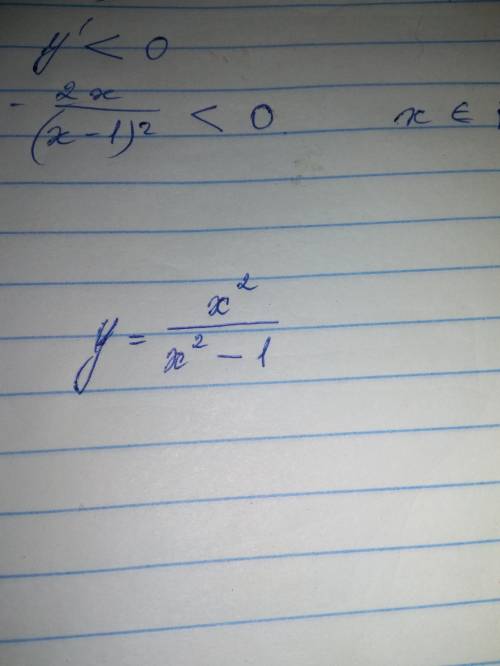 y' < 0
- 2x/(x-1)² < 0 x ∈
y = x²/(x² - 1)